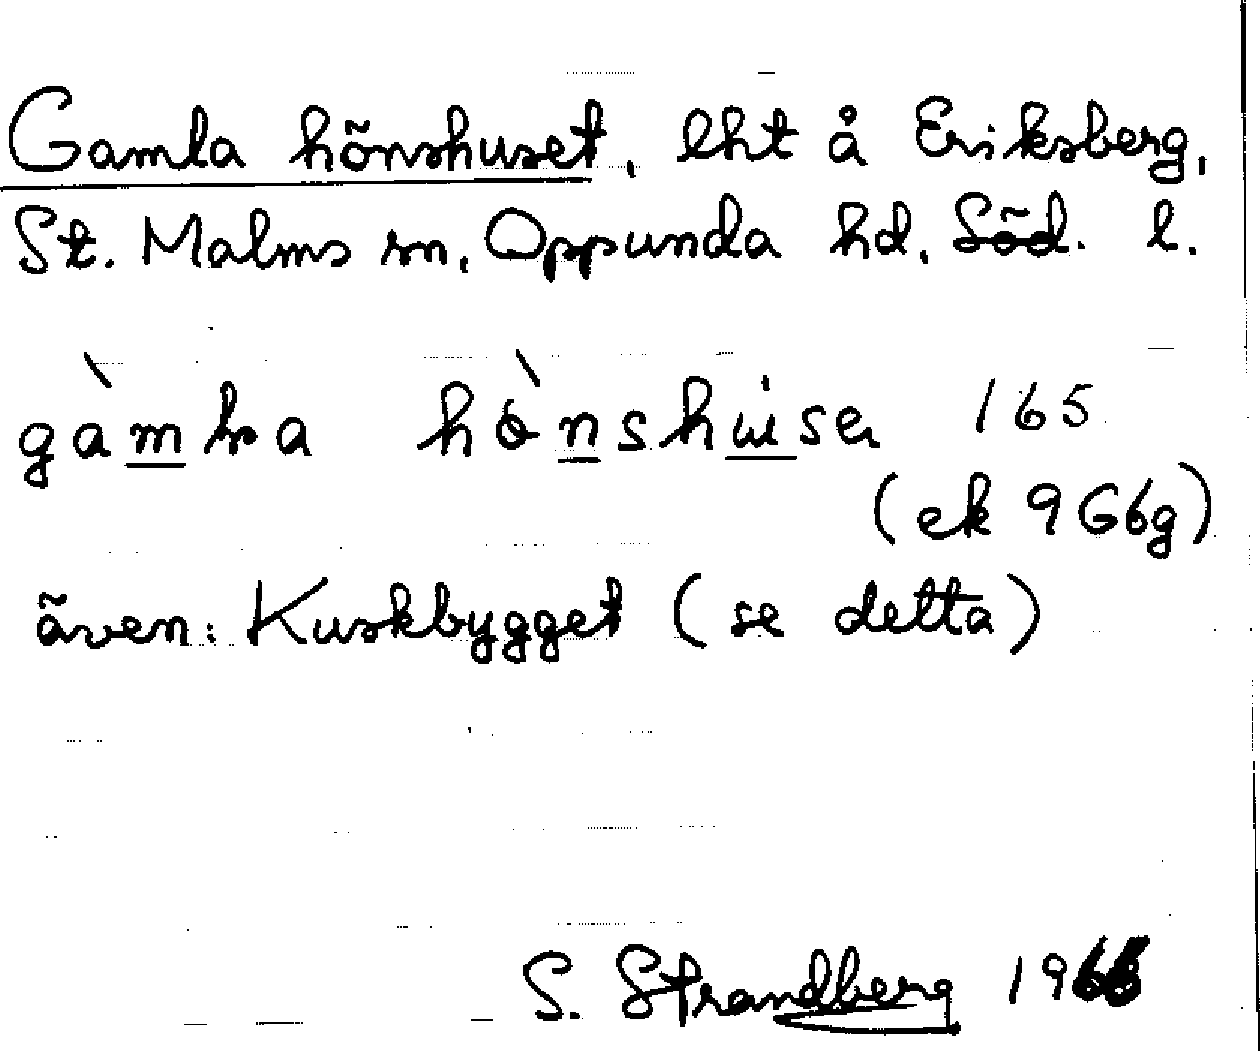 Gamla hönshuset, lht å Eriksberg,
St. Malms sn, Oppunda hd, Söd. l.
165
(ek 9 G6g)
även: Kuskbygget (se detta)
S. Strandberg 1966